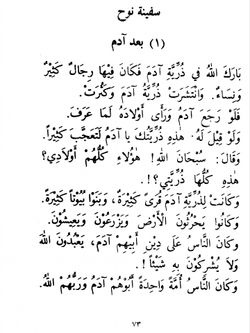 سفينة نوح
(١) بعد آدم
بَارَكَ اللهُ فِي ذُرِّيَّةِ آدَمَ فَكَانَ فِيهَا رِجَالٌ كَثِيرٌ
وَنِسَاءٌ. وَانْتَشَرَتْ ذُرِّيَّةُ آدَمَ وَكَثُرَتْ.
فَلَوْ رَجَعَ آدَمُ وَرَأَى أَوْلَادَهُ لَمَا عَرَفَ.
وَلَوْ قِيلَ لَهُ هٰذِهِ ذُرِّيَّتُكَ يَا آدَمُ لَتَعَجَّبَ كَثِيراً.
وَقَالَ: سُبْحَانَ اللهِ! هٰؤُلَاءِ كُلُّهُمْ أَوْلَادِي؟
هٰذِهِ كُلُّهَا ذُرِّيَّتِي؟!.
وَكَانَتْ لِذُرِّيَّةِ آدَمَ قُرًى كَثِيرَةٌ، وَبَنَوْا بُيُوتاً كَثِيرَةً.
وَكَانُوا يَحْرُثُونَ الْأَرْضَ وَيَزْرَعُونَ وَيَعِيشُونَ.
وَكَانَ النَّاسُ عَلَى دِينِ أَبِيهِمْ آدَمَ، يَعْبُدُونَ اللهَ
وَلَا يُشْرِكُونَ بِهِ شَيْئاً!
وَكَانَ النَّاسُ أُمَّةً وَاحِدَةً أَبُوهُمْ آدَمُ وَرَبُّهُمُ اللهُ.
٧٣